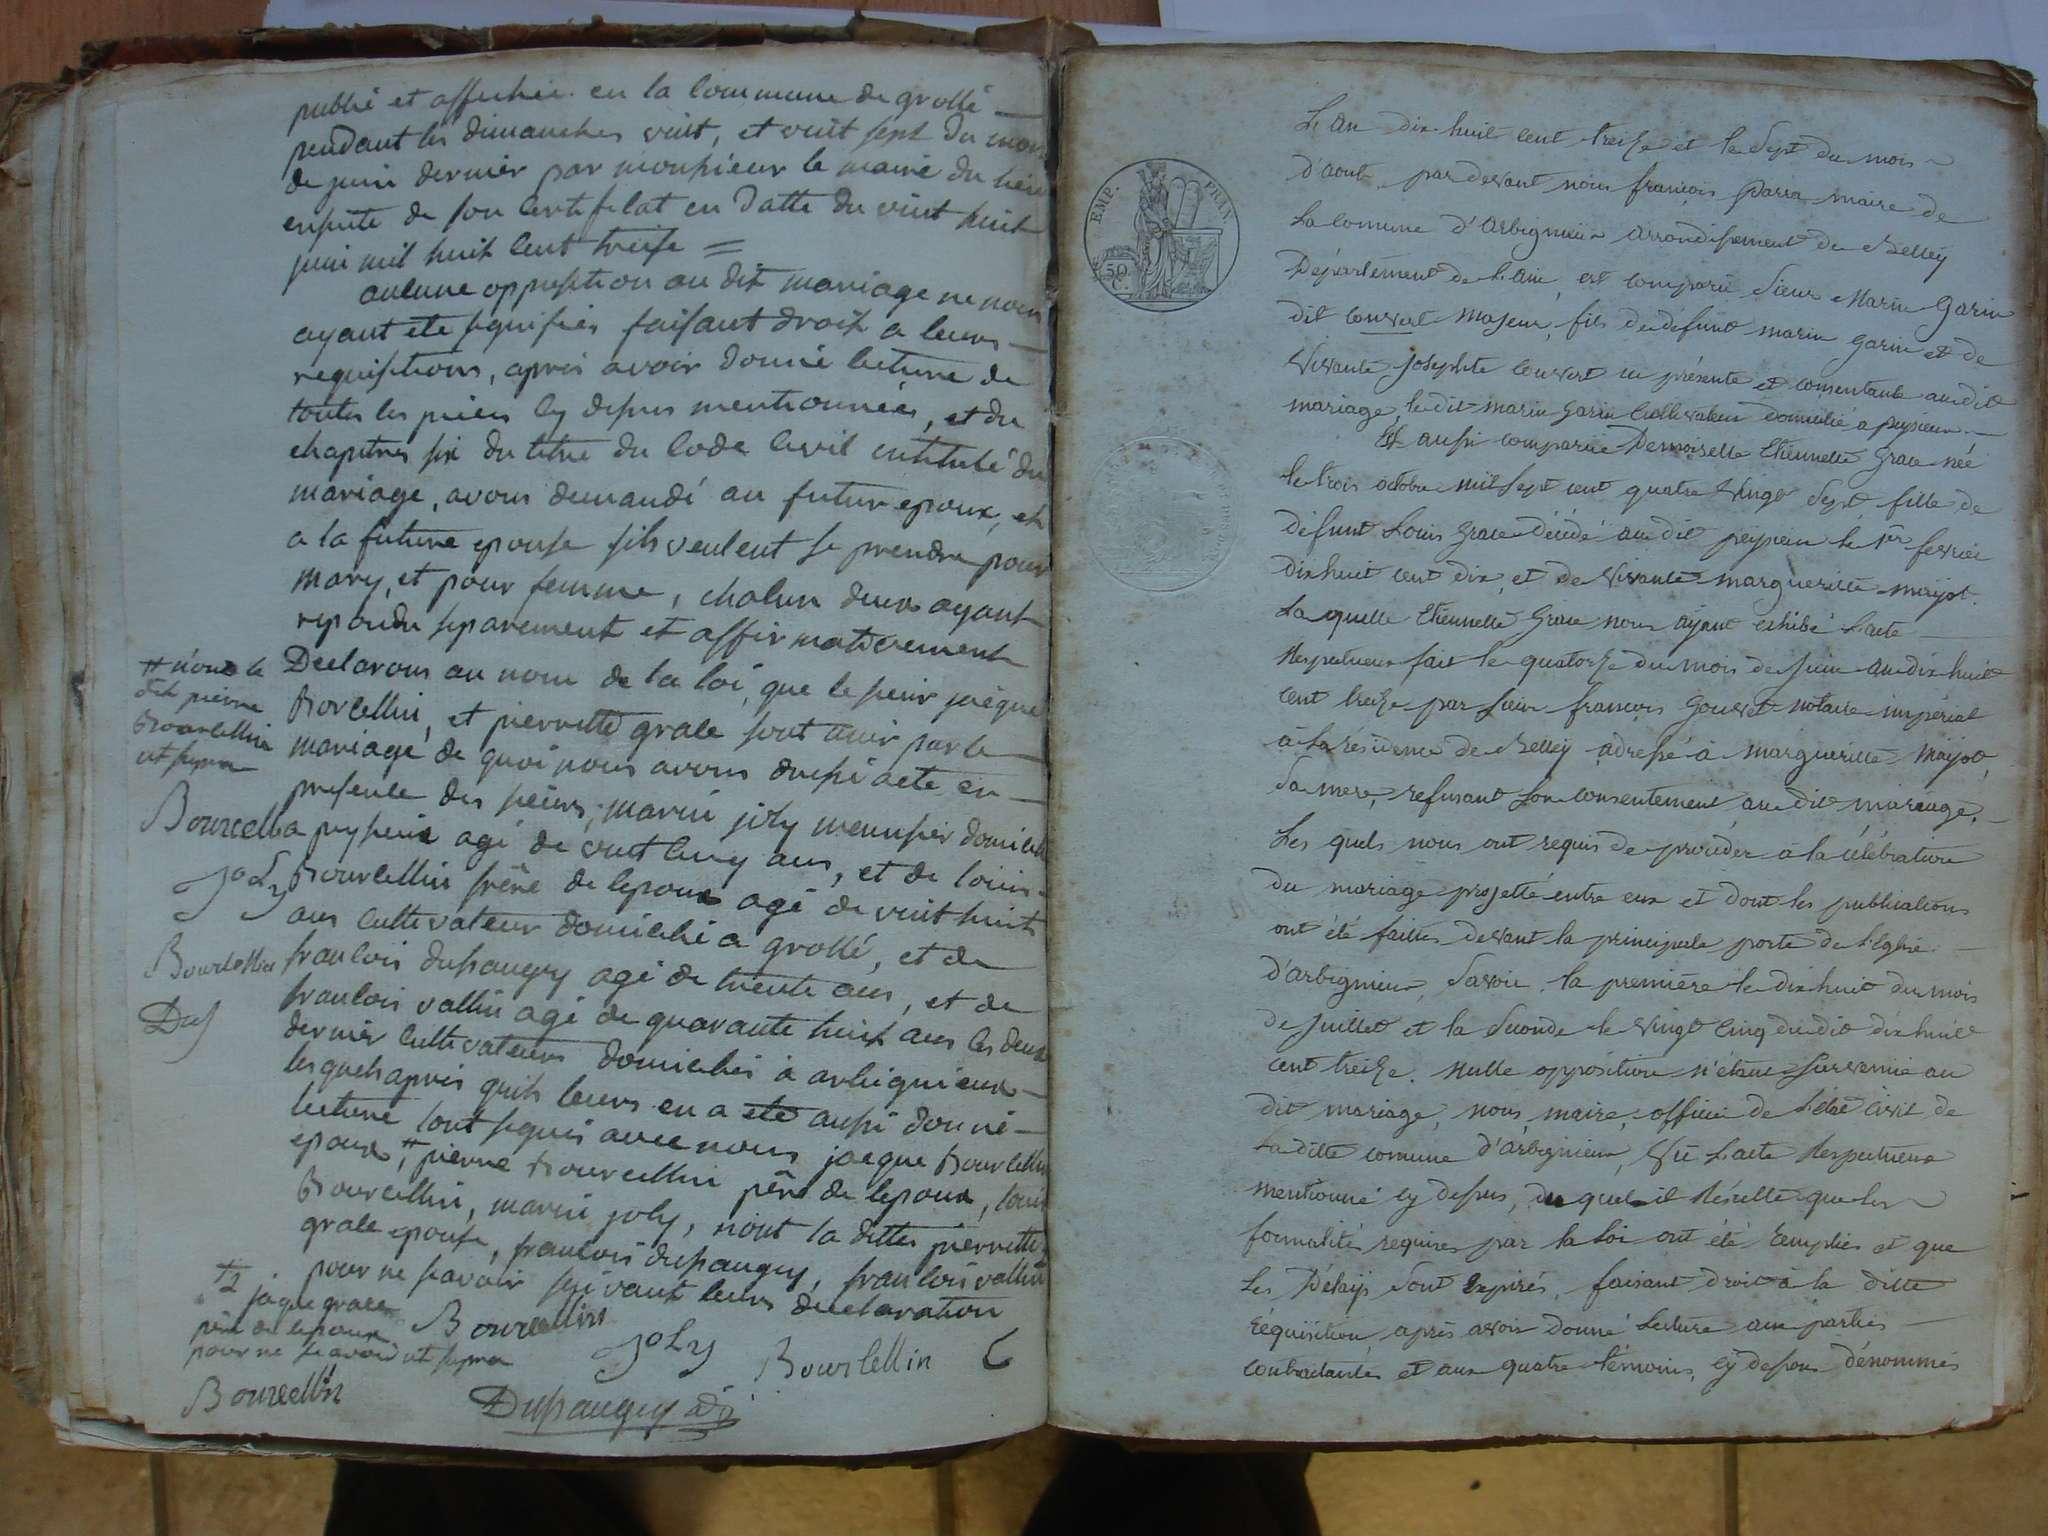 publié et affichée en la Commune de grollé
pendant les dimanches vint, et vint sept du mois
de juin dernier par monsieur le maire du lieu
ensuite de son Certificat en datte du vint huit
juin mil huit Cent treise =
aucune opposition au dit mariage ne nous
ayant ete signifiés faisant droit a leurs
requisitions, apres avoir donné lecture de
toutes les pièces Cy dessus mentionnées, et du
chapitres six du titre du Code Civil intitulé du
mariage, avons demandé au futur epoux, et
a la future epouse sils veulent se prendre pour
mary, et pour femme, chalun deux ayant
repondu separement et affirmativement
Declarons au nom de la loi, que le sieur jacque
Borcellin, et pierrette grale sont unir par le
mariage de quoi nous avons dressé acte en
presence des sieurs, marin joly meunsier domicilié
a peysieu agé de vint Cinq ans, et de louis
Bourcellin frère de lepoux agé de vint huit
ans Cultivateur domicilié a grollé, et de
francois dupaugey agé de trente ans, et de
francois vallin agé de quarante huit ans les deux
dernier Cultivateurs domiciliés à arbignieux
lesquels apres quils leurs en a eté aussi donné
lecture sont signés avec nous jacque Bourcellin
epoux, # pierre Bourcellin père de lepoux, louis
Bourcellin, marin joly, niont la dittes pierrette
grale epouse, francois dupaugey, francois vallin
pour ne scavoir suivant leurs declaration
# niont le
dit pierre
Bourcellin
ut supra
Bourcellin
JoLy
Bourcellin
Dup
jaque grale
père de lepouse
pour ne scavoir ut supra
Bourcellin
JoLy
Bourcellin
Bourcellin
Dupaugey adj
EMP. FRAN
50
C.
L'an dix-huit cent treize et le Sept du mois
d'aout, par devant nous françois Parra maire de
La comune d'Arbignieu arrondissement de Belley
Département de L'ain, est comparu Sieur Marin Garin
dit couvert majeur, fils de défunt marin Garin et de
Vivante Josephte Couvert ici présente et consentante au dit
mariage, le dit marin Garin Cultivateur domicilié à peysieu.
Et aussi comparue Demoiselle Etiennette Grace née
le trois octobre mil Sept cent quatre Vingt Sept fille de
défunt Louis Grace décédé au dit peysieu le 1er fevrier
dix huit cent dix, et de Vivante margueritte mayot.
La quelle Etiennette Grace nous ayant exhibé L'acte
Respectueux fait le quatorze du mois de Juin an dix huit
cent treize par Sieur françois Gouvet notaire impérial
à La résidence de Belley adressé à margueritte mayot,
Sa mere, refusant Son consentement au dit mariage.
Les quels nous ont requis de procéder à la célébration
du mariage projetté entre eux et dont les publications
ont été faittes devant la principale porte de L'Eglise
d'arbignieu, Savoir, la première le dix huit du mois
de Juillet et la Seconde le Vingt Cinq du dit dix huit
cent treize. Nulle opposition n'étant Survenue au
dit mariage, nous, maire, officier de L'état Civil de
La ditte comune d'Arbignieu, Vû L'acte Respectueux
mentionné cy dessus, du quel il Résulte que les
formalités requises par la Loi ont été remplies et que
Les Délays Sont expirés, faisant droit à la ditte
réquisition, après avoir donné Lecture aux parties
contractantes et aux quatre témoins, cy dessous dénommés